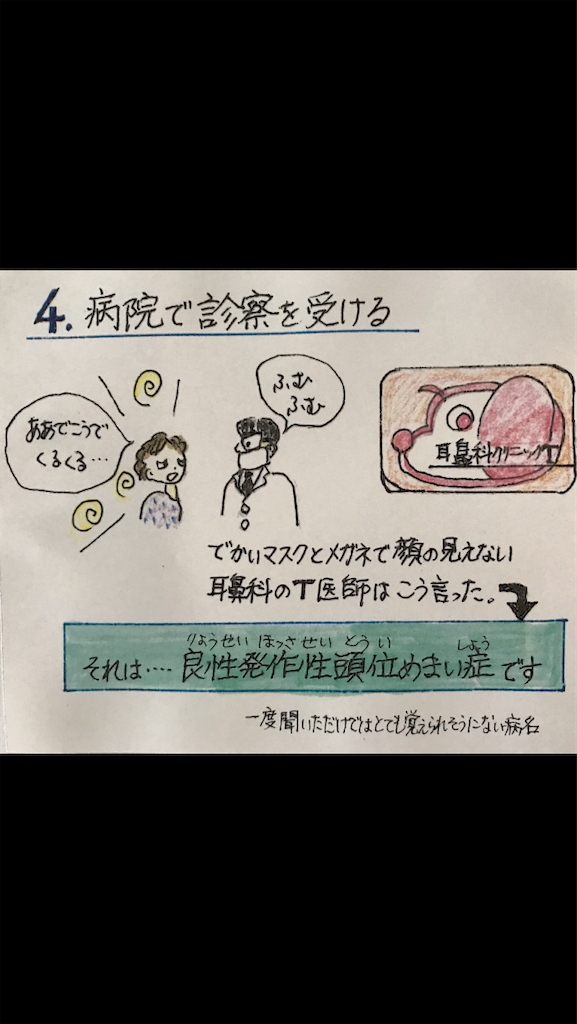 4. 病院で診察を受ける
ああでこうで
くるくる…
ふむ
ふむ
耳鼻科クリニックT
でかいマスクとメガネで顔の見えない
耳鼻科のT医師はこう言った。
りょうせい ほっさせい とうい しょう
それは…. 良性発作性頭位めまい症です
一度聞いただけではとても覚えられそうにない病名